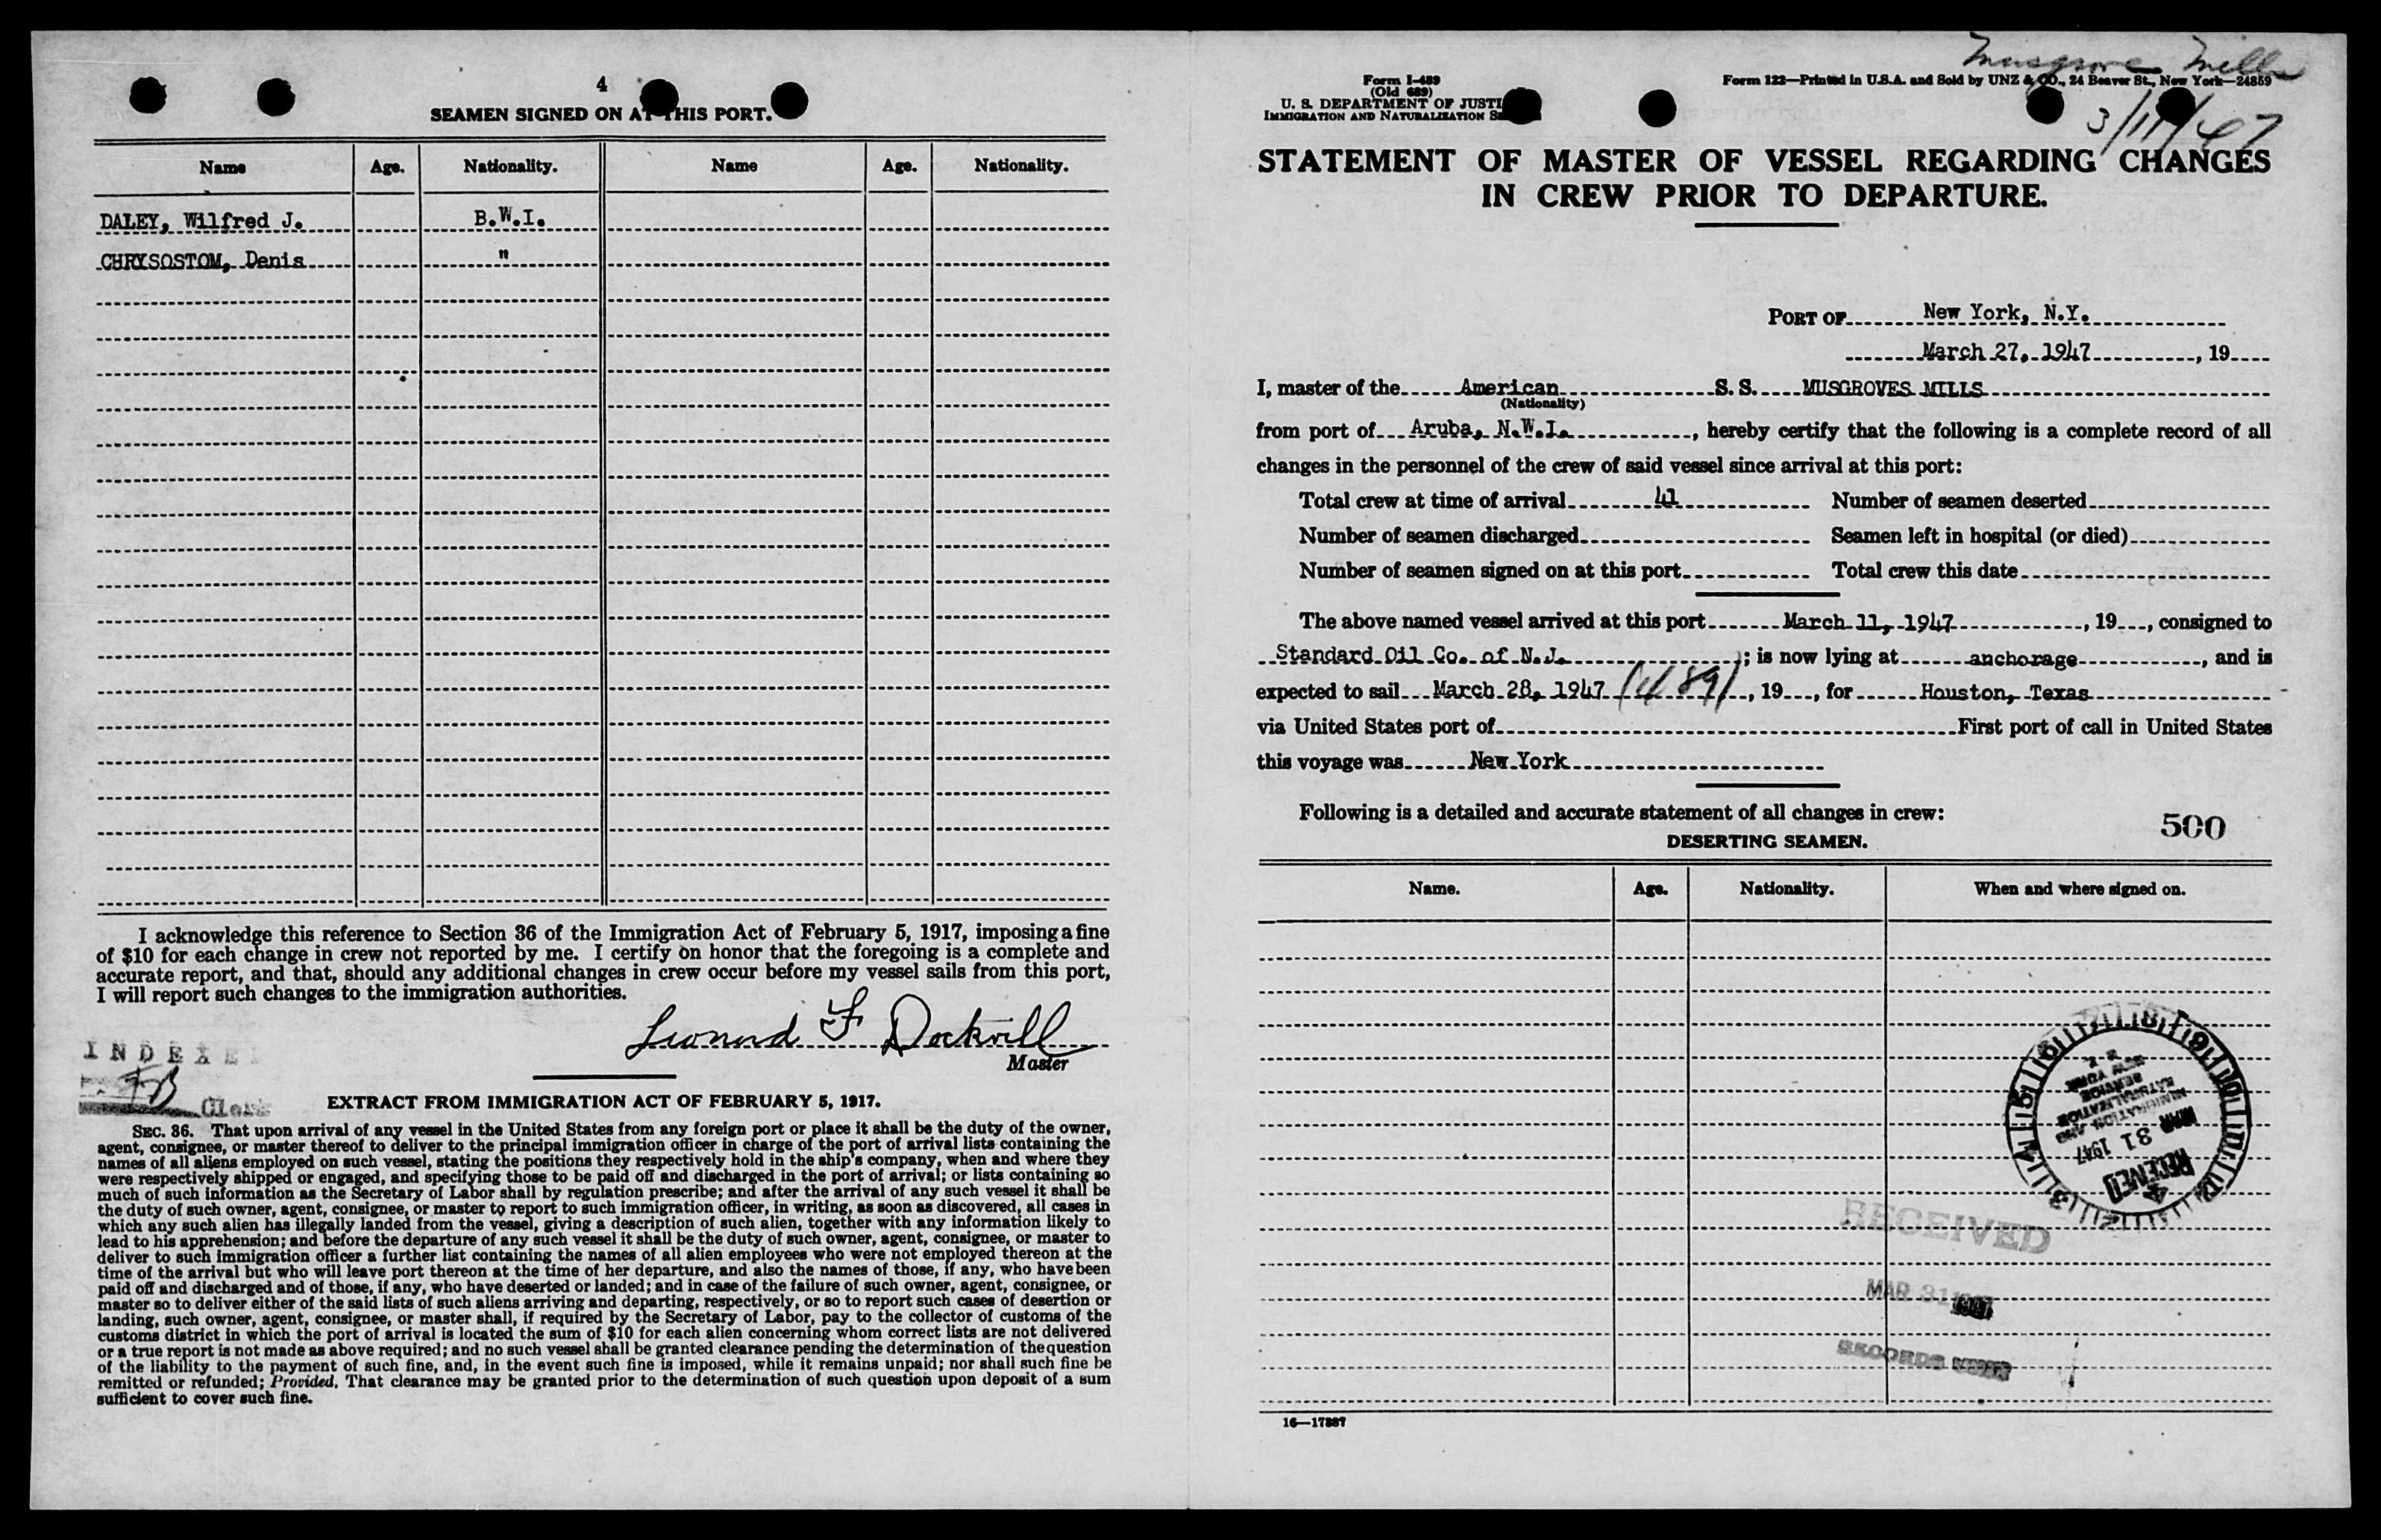 4
SEAMEN SIGNED ON AT THIS PORT.
Name Age. Nationality. Name Age. Nationality.
DALEY, Wilfred J. B.W.I.
CHRYSOSTOM, Denis "
I acknowledge this reference to Section 36 of the Immigration Act of February 5, 1917, imposing a fine
of $10 for each change in crew not reported by me. I certify on honor that the foregoing is a complete and
accurate report, and that, should any additional changes in crew occur before my vessel sails from this port,
I will report such changes to the immigration authorities.
Leonard F Dockrill
Master
INDEXE
FB
Clerk
EXTRACT FROM IMMIGRATION ACT OF FEBRUARY 5, 1917.
SEC. 36. That upon arrival of any vessel in the United States from any foreign port or place it shall be the duty of the owner,
agent, consignee, or master thereof to deliver to the principal immigration officer in charge of the port of arrival lists containing the
names of all aliens employed on such vessel, stating the positions they respectively hold in the ship's company, when and where they
were respectively shipped or engaged, and specifying those to be paid off and discharged in the port of arrival; or lists containing so
much of such information as the Secretary of Labor shall by regulation prescribe; and after the arrival of any such vessel it shall be
the duty of such owner, agent, consignee, or master to report to such immigration officer, in writing, as soon as discovered, all cases in
which any such alien has illegally landed from the vessel, giving a description of such alien, together with any information likely to
lead to his apprehension; and before the departure of any such vessel it shall be the duty of such owner, agent, consignee, or master to
deliver to such immigration officer a further list containing the names of all alien employees who were not employed thereon at the
time of the arrival but who will leave port thereon at the time of her departure, and also the names of those, if any, who have been
paid off and discharged and of those, if any, who have deserted or landed; and in case of the failure of such owner, agent, consignee, or
master so to deliver either of the said lists of such aliens arriving and departing, respectively, or so to report such cases of desertion or
landing, such owner, agent, consignee, or master shall, if required by the Secretary of Labor, pay to the collector of customs of the
customs district in which the port of arrival is located the sum of $10 for each alien concerning whom correct lists are not delivered
or a true report is not made as above required; and no such vessel shall be granted clearance pending the determination of the question
of the liability to the payment of such fine, and, in the event such fine is imposed, while it remains unpaid; nor shall such fine be
remitted or refunded; Provided, That clearance may be granted prior to the determination of such question upon deposit of a sum
sufficient to cover such fine.
Musgrove Mills
3/11/47
Form I-489
(Old 689)
U. S. DEPARTMENT OF JUSTI
IMMIGRATION AND NATURALIZATION S
Form 122—Printed in U.S.A. and Sold by UNZ & CO., 24 Beaver St., New York—24859
STATEMENT OF MASTER OF VESSEL REGARDING CHANGES
IN CREW PRIOR TO DEPARTURE.
PORT OF New York, N.Y.
March 27, 1947, 19
I, master of the American S. S. MUSGROVES MILLS
(Nationality)
from port of Aruba, N.W.I., hereby certify that the following is a complete record of all
changes in the personnel of the crew of said vessel since arrival at this port:
Total crew at time of arrival 41 Number of seamen deserted
Number of seamen discharged Seamen left in hospital (or died)
Number of seamen signed on at this port Total crew this date
The above named vessel arrived at this port March 11, 1947, 19, consigned to
Standard Oil Co. of N.J. ; is now lying at anchorage, and is
expected to sail March 28, 1947, 19, for Houston, Texas
via United States port of First port of call in United States
this voyage was New York
Following is a detailed and accurate statement of all changes in crew:
500
DESERTING SEAMEN.
Name. Age. Nationality. When and where signed on.
RECEIVED
MAR 31 1947
IMMIGRATION AND
NATURALIZATION
SERVICE
NEW YORK
RECEIVED
MAR 31
RECORDS
16—17887